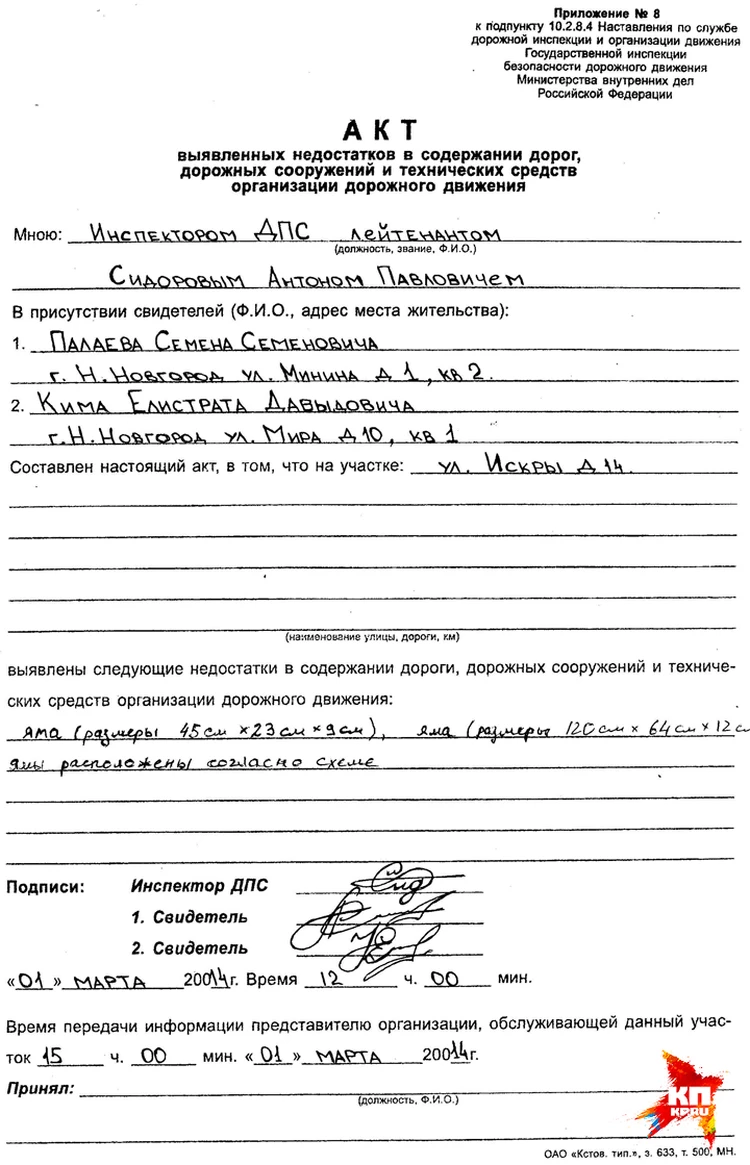 Приложение № 8
к подпункту 10.2.8.4 Наставления по службе
дорожной инспекции и организации движения
Государственной инспекции
безопасности дорожного движения
Министерства внутренних дел
Российской Федерации
АКТ
выявленных недостатков в содержании дорог,
дорожных сооружений и технических средств
организации дорожного движения
Мною: Инспектором ДПС лейтенантом
(должность, звание, Ф.И.О.)
Сидоровым Антоном Павловичем
В присутствии свидетелей (Ф.И.О., адрес места жительства):
1. Палаева Семена Семеновича
г. Н.Новгород ул. Минина д 1, кв 2.
2. Кима Елистрата Давыдовича
г. Н.Новгород ул. Мира д 10, кв 1
Составлен настоящий акт, в том, что на участке: ул. Искры д 14.
(наименование улицы, дороги, км)
выявлены следующие недостатки в содержании дороги, дорожных сооружений и техниче-
ских средств организации дорожного движения:
яма (размеры 45см ×23см ×9см), яма (размеры 120см × 64см ×12с
ямы расположены согласно схеме
Подписи: Инспектор ДПС
1. Свидетель
2. Свидетель
«01» МАРТА 20014г. Время 12 ч. 00 мин.
Время передачи информации представителю организации, обслуживающей данный учас-
ток 15 ч. 00 мин. «01» МАРТА 20014г.
Принял:
(должность, Ф.И.О.)
КП
KP.RU
ОАО «Кстов. тип.», з. 633, т. 500, МН.